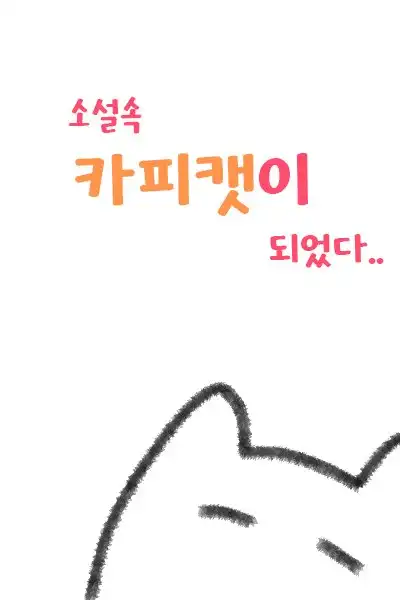 소설속
카피캣이
되었다..